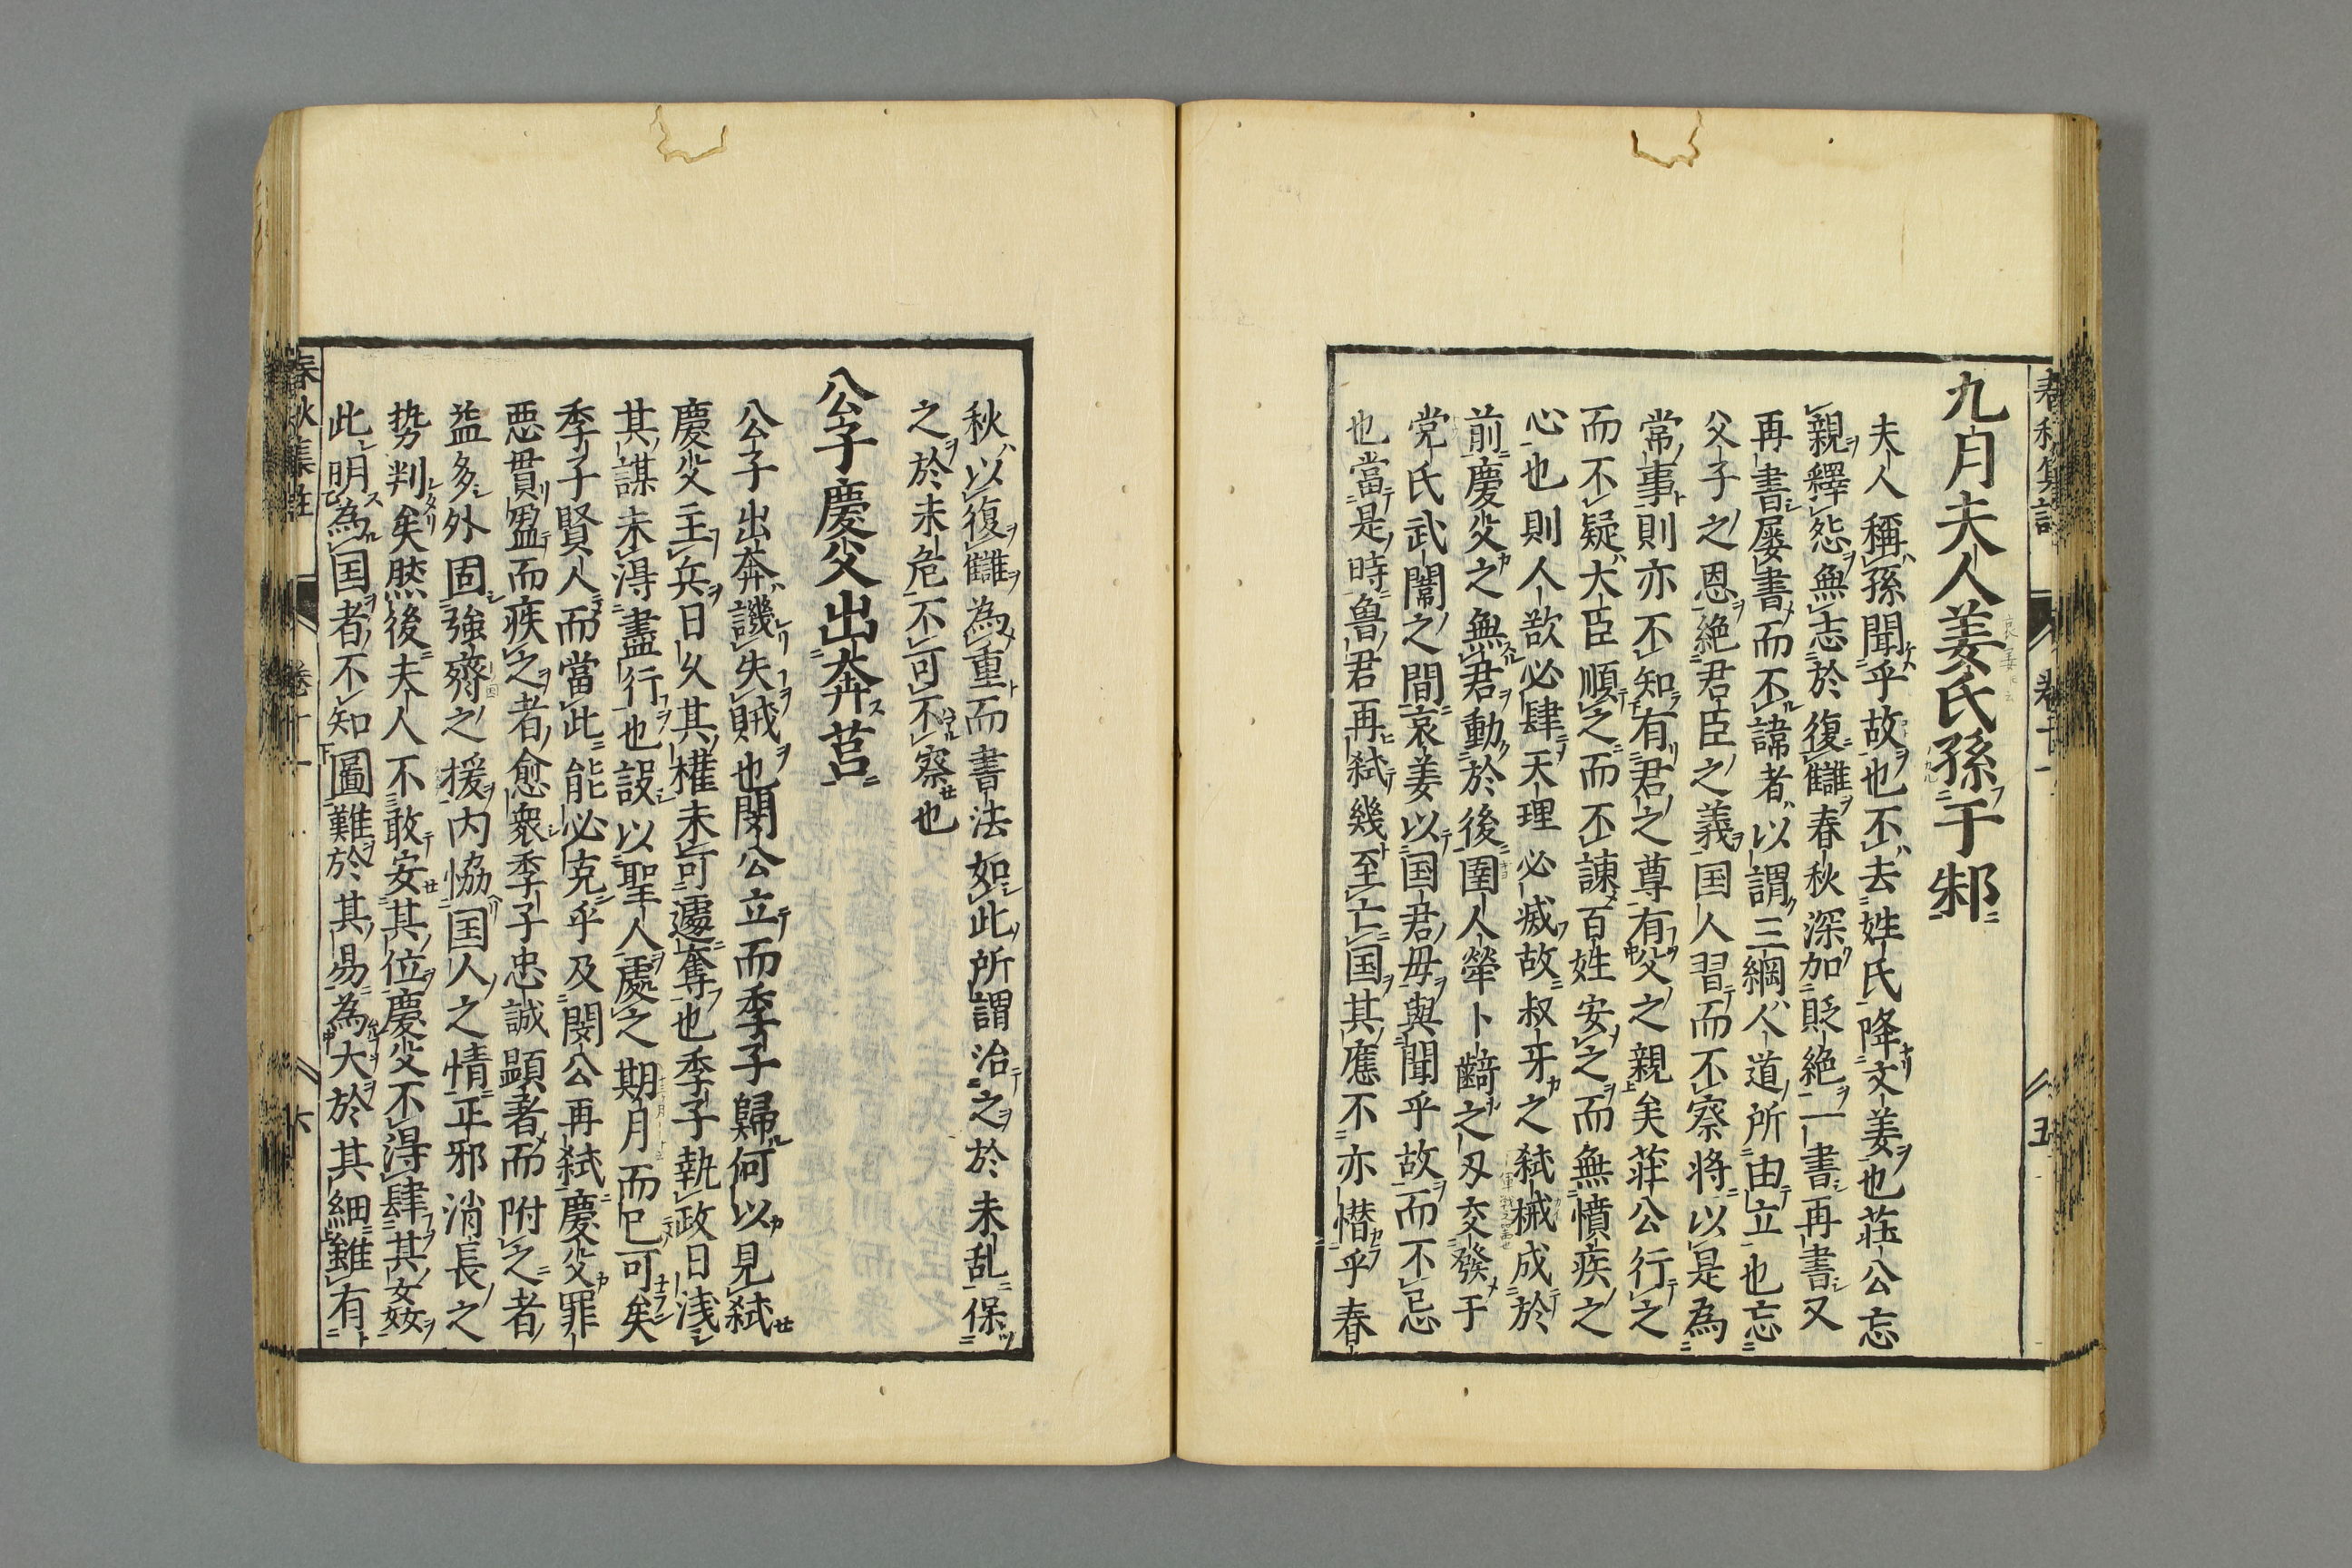 九月夫人姜氏孫于邾
夫人稱孫聞乎故也不去姓氏降文姜也莊公忘
親釋怨無志於復讎春秋深加貶絶一書再書又
再書屡書而不諱者以謂三綱人道所由立也忘
父子之恩絶君臣之義国人習而不察将以是為
常事則亦不知有君之尊有父之親矣莊公行之
而不疑大臣順之而不諌百姓安之而無憤疾之
心也則人欲必肆天理必滅故叔牙之弑械成於
前慶父之無君動於後圉人犖卜齮之刄交發于
党氏武闈之間哀姜以国君毋與聞乎故而不忌
也當是時魯君再弑幾至亡国其應不亦憯乎春
秋以復讎為重而書法如此所謂治之於未乱保
之於未危不可不察也
公子慶父出奔莒
公子出奔譏失賊也閔公立而季子歸何以見弑
慶父主兵日久其權未可遽奪也季子執政日浅
其謀未得盡行也設以聖人處之期月而已可矣
季子賢人而當此能必克乎及閔公再弑慶父罪
悪貫盈而疾之者愈衆季子忠誠顕著而附之者
益多外固強齊之援内恊国人之情正邪消長之
势判矣然後夫人不敢安其位慶父不得肆其姦
此明為国者不知圖難於其易為大於其細雖有
春秋集註
卷十一
六